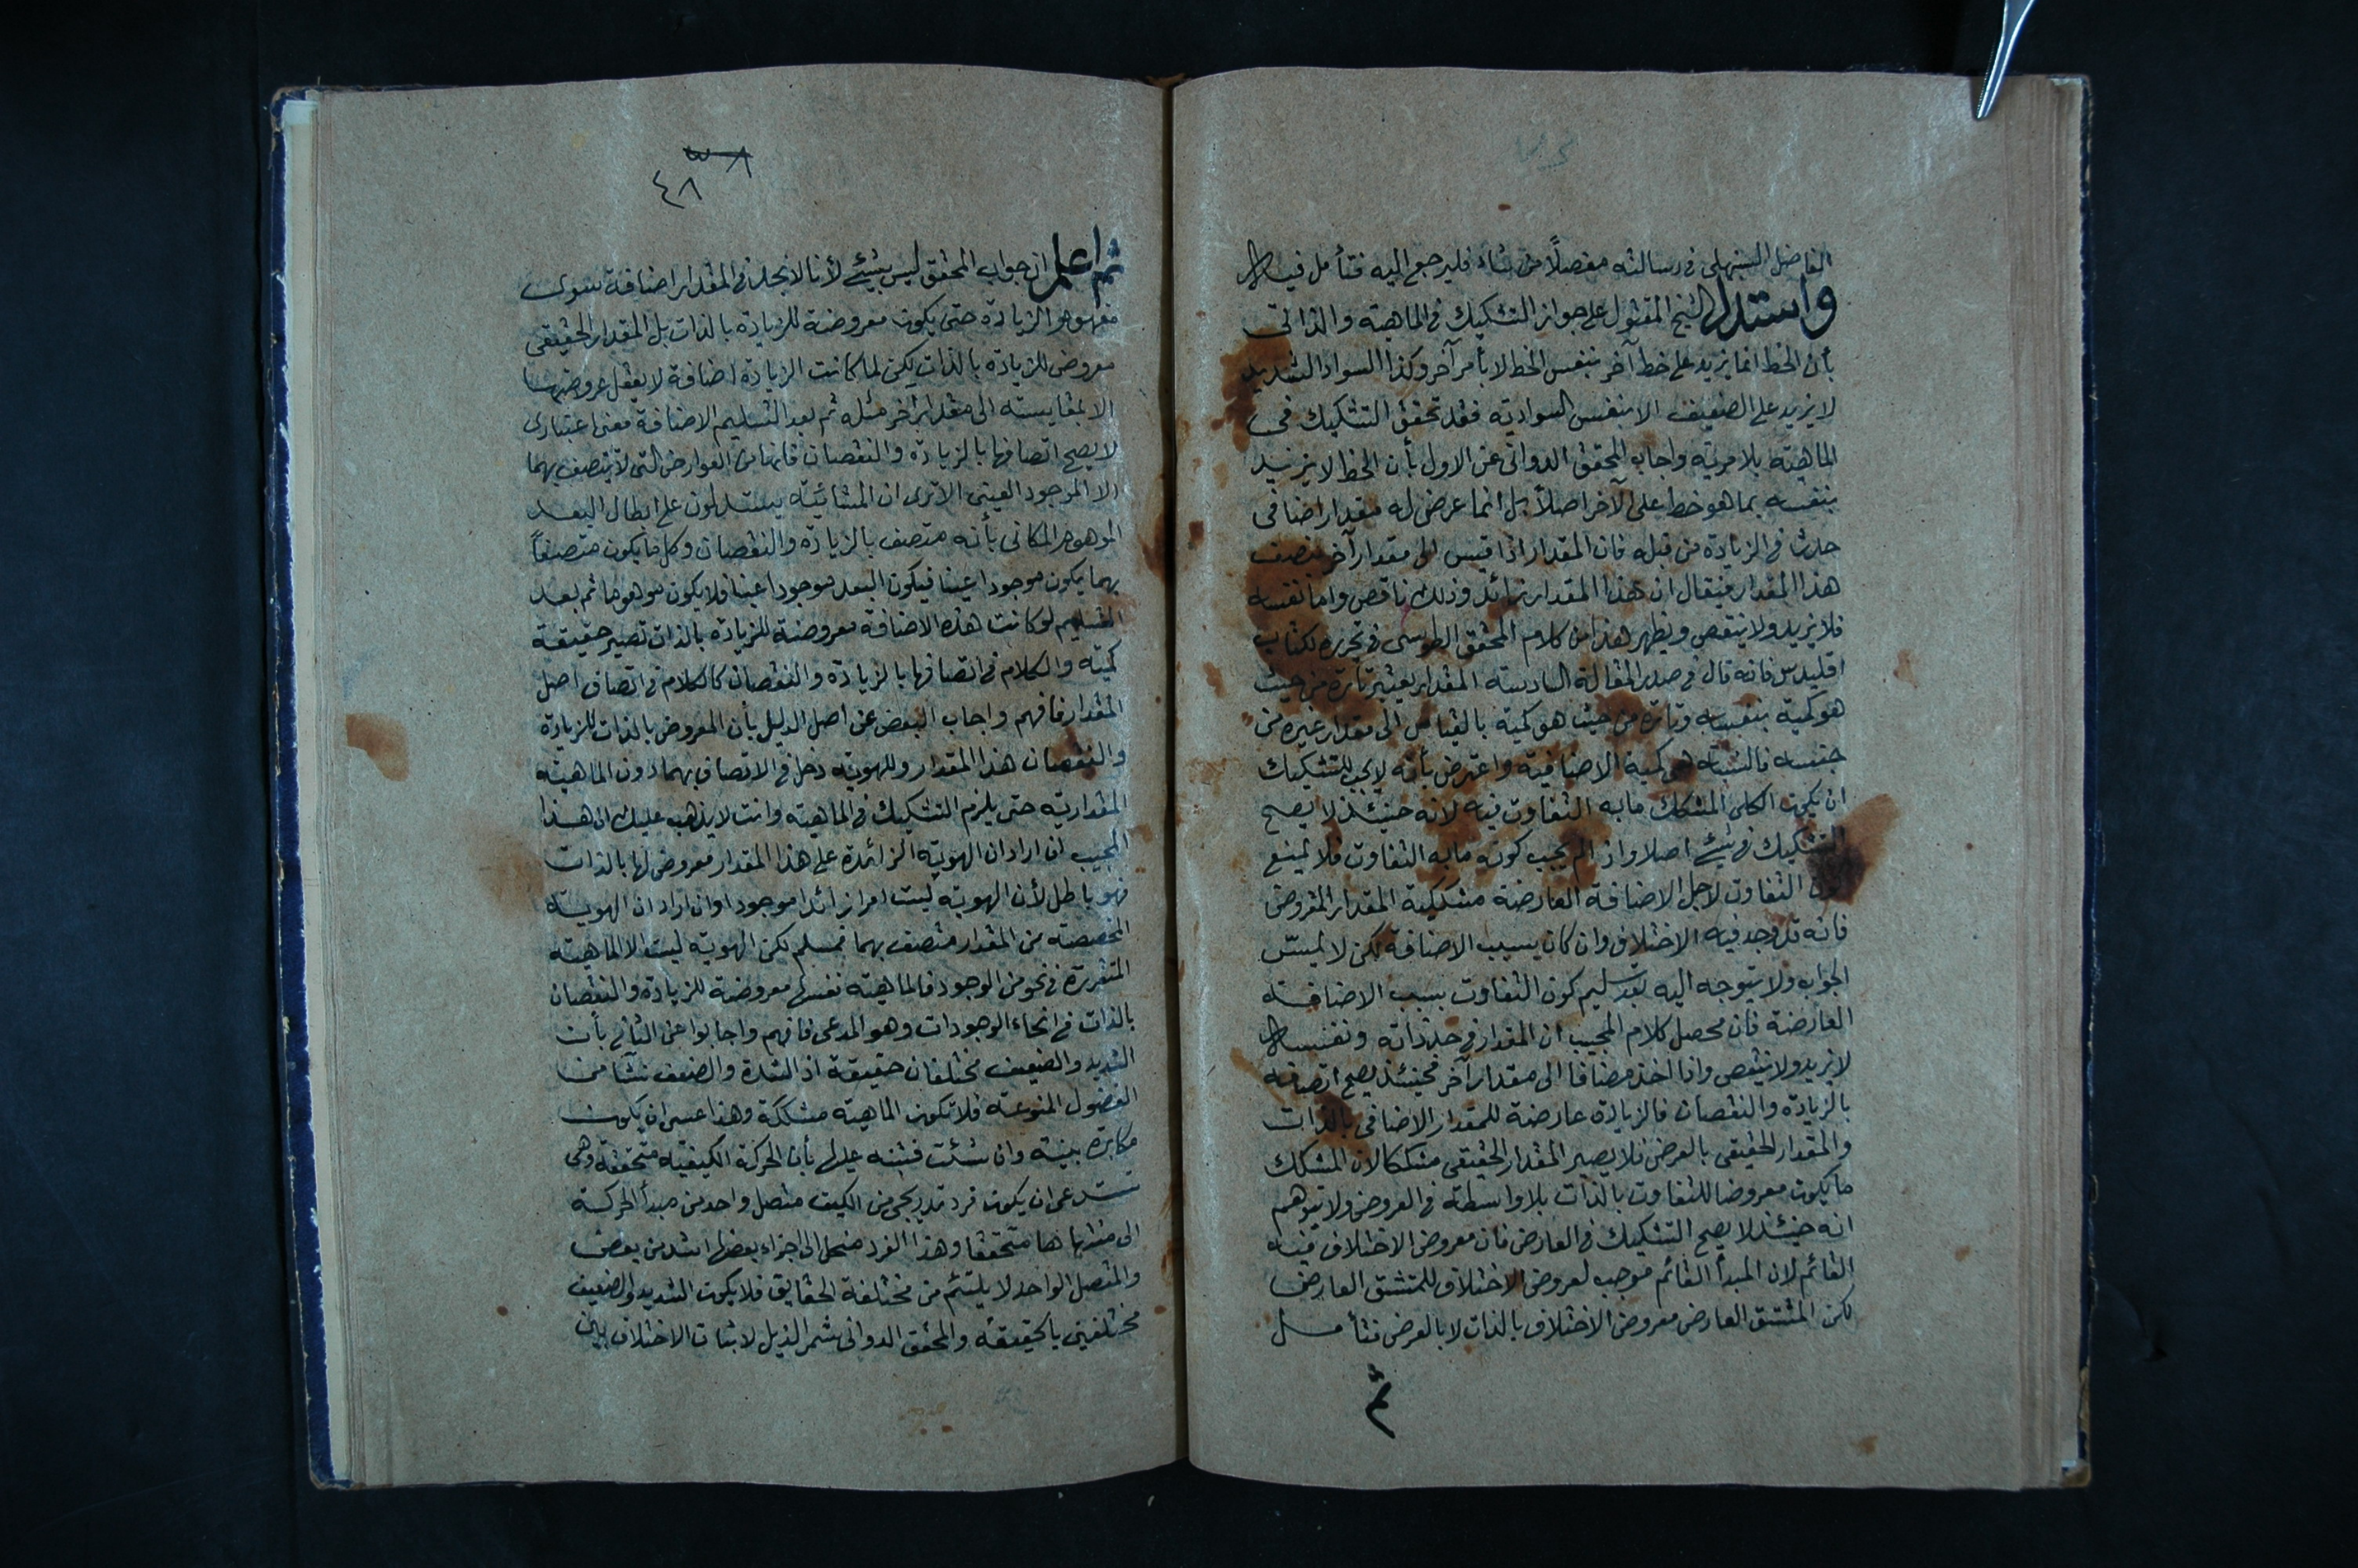 الفاضل السنبهلى فى رسالته مفصلاً من شاء فليرجع اليه فتأمل فيها
واستدل الشيخ المقتول على جواز التشكيك فى الماهية والذاتى
بأن الخط انما يزيد على خط آخر بنفس الخط لا بأمر آخر وكذا السواد الشديد
لا يزيد على الضعيف الا بنفس السوادية فقد تحقق التشكيك فى
الماهية بلا مرية واجاب المحقق الدوانى عن الاول بأن الخط لا يزيد
بنفسه بما هو خط على الآخر اصلاً بل انما عرض له مقدار اضافى
حدث فى الزيادة من قبله فان المقدار اذا قيس الى مقدار آخر يتصف
هذا المقدار فيقال ان هذا المقدار زائد وذلك ناقص واما نفسه
فلا يزيد ولا ينتقص ويظهر هذا من كلام المحقق الطوسى فى تحريره لكتاب
اقليدس فانه قال فى صدر المقالة السادسة المقدار يعتبر تارة من حيث
هو كمية بنفسه وتارة من حيث هو كمية بالقياس الى مقدار غيره من
جنسه فالنسبة هى كمية الاضافية واعترض بأنه لا يجب للتشكيك
ان يكون الكلى المشكك ما به التفاوت فيه لانه حينئذ لا يصح
التشكيك فى شيئ اصلا واذ الم يجب كونه ما به التفاوت فلا يمنع
كون التفاوت لاجل الاضافة العارضة مشككية المقدار المفروض
فانه قد وجد فيه الاختلاف وان كان بسبب الاضافة لكن لا يمسّ
الجواب ولا يتوجه اليه بعد تسليم كون التفاوت بسبب الاضافة
العارضة فان محصل كلام المجيب ان المقدار فى حد ذاته ونفسها
لا يزيد ولا ينتقص واذا اخذ مضافا الى مقدار آخر فحينئذ يصح اتصافه
بالزيادة والنقصان فالزيادة عارضة للمقدار الاضافى بالذات
والمقدار الحقيقى بالعرض فلا يصير المقدار الحقيقى مشككا لان المشكك
ما يكون معروضا للتفاوت بالذات بلا واسطة فى العروض ولا يتوهم
انه حينئذ لا يصح التشكيك فى العارض فان معروض الاختلاف فيه
القائم لان المبدأ القائم موجب لعروض الاختلاف للمشتق العارض
لكن المشتق العارض معروض الاختلاف بالذات لا بالعرض فتأمل
ثم
٤٨
ثم اعلم ان جواب المحقق ليس بشيئ لأنا لا نجد فى المقدار اضافة سوى
مفهوم الزيادة حتى يكون معروضة للزيادة بالذات بل المقدار الحقيقى
معروض للزيادة بالذات لكن لما كانت الزيادة اضافة لا يعقل عروضها
الا بمقايسته الى مقدار آخر مثله ثم بعد التسليم الاضافة معنى اعتبارى
لا يصح اتصافها بالزيادة والنقصان فانها من العوارض التى لا يتصف بهما
الا الموجود العينى الا ترى ان المشائية يستدلون على ابطال البعد
الموهوم المكانى بأنه متصف بالزيادة والنقصان وكل ما يكون متصفاً
بهما يكون موجودا عينا فيكون البعد موجودا عينا فلا يكون موهوما ثم بعد
التسليم لو كانت هذه الاضافة معروضة للزيادة بالذات تصير حقيقة
كمية والكلام فى اتصافها بالزيادة والنقصان كالكلام فى اتصاف اصل
المقدار فافهم واجاب البعض عن اصل الدليل بأن المعروض بالذات للزيادة
والنقصان هذا المقدار وللهوية دخل فى الاتصاف بهما دون الماهية
المقدارية حتى يلزم التشكيك فى الماهية وانت لا يذهب عليك ان هذا
المجيب ان اراد ان الهوية الزائدة على هذا المقدار معروض لها بالذات
فهو باطل لأن الهوية ليست امرا زائدا موجودا وان اراد ان الهوية
المخصصة من المقدار متصف بهما فمسلم لكن الهوية ليست الا الماهية
المتقررة فى نحو من الوجود فالماهية نفسها معروضة للزيادة والنقصان
بالذات فى انحاء الوجودات وهو المدعى فافهم واجابوا عن الثانى بأن
الشديد والضعيف مختلفان حقيقة اذ الشدة والضعف نشأ من
الفصول المنوعة فلا تكون الماهية مشككة وهذا عسى ان يكون
مكابرة بينة وان شئت فتنبه عليها بأن الحركة الكيفية متحققة وهى
تستدعى ان يكون فرد تدريجى من الكيف متصل واحد من مبدأ الحركة
الى منتهاها متحققا وهذا الفرد منحل الى اجزاء بعضها اشد من بعض
والمتصل الواحد لا يلتئم من مختلفة الحقايق فلا يكون الشديد والضعيف
مختلفين بالحقيقة والمحقق الدوانى شمر الذيل لاثبات الاختلاف بين